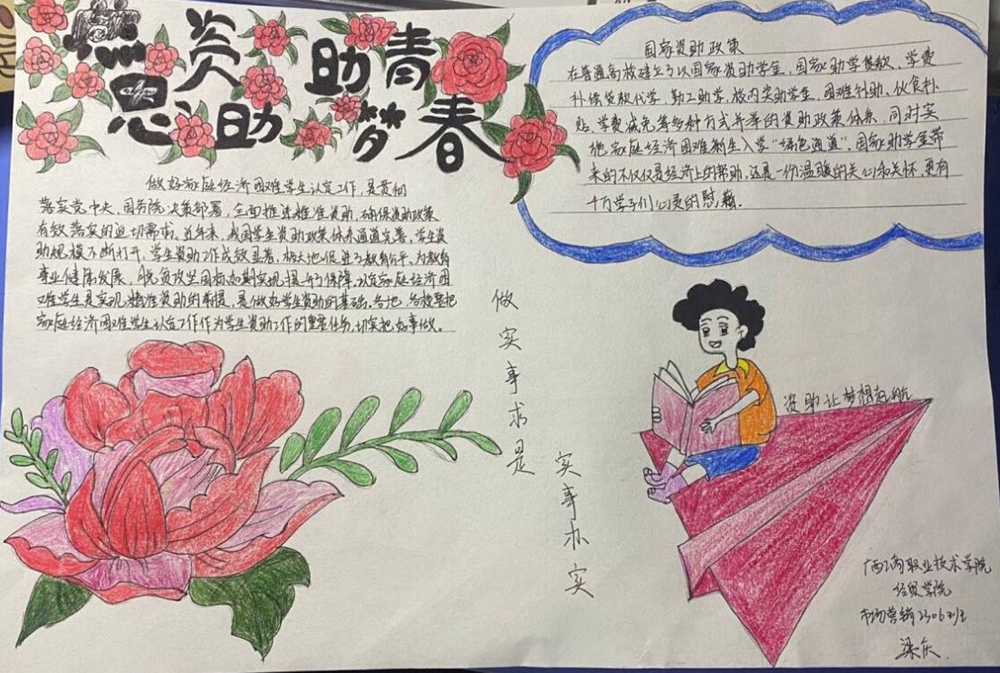 感资助
恩资助
助青
梦春
国家资助政策
在普通高校建立了以国家奖助学金、国家助学贷款、学费
补偿贷款代学、勤工助学、校内奖助学生、困难补助、伙食补
贴、学费减免等多种方式并举的资助政策体系,同时实
施家庭经济困难新生入学“绿色通道”,国家助学金带
来的不仅仅是经济上的帮助,还是一份温暖的关心和关怀,更有
十万学子们心灵的慰藉.
做好家庭经济困难学生认定工作,是贯彻
落实党中央、国务院决策部署,全面推进推准资助,确保资助政策
有效落实的迫切需求,近年来,我国学生资助政策体系通道完善,学生资
助规模不断打开,学生资助工作成效显著,极大地促进了教育公平,为教育
事业健康发展,脱贫攻坚目标如期实现提升了保障,认定家庭经济困
难学生是实现精准资助的前提,是做好学生资助的基础,各地、各校要把
家庭经济困难学生认定工作作为学生资助工作的重要任务,切实把好事做.
做实事求是
实事办实
资助让梦想起航
职业技术学院
经贸学院
市场营销2306班